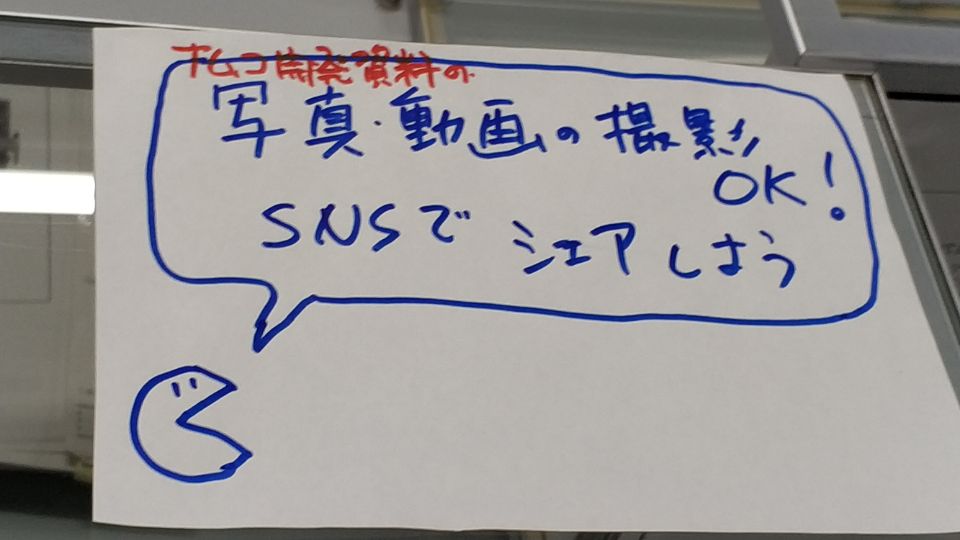 ナムコ開発資料の
写真・動画の撮影
OK!
SNSで シェアしよう